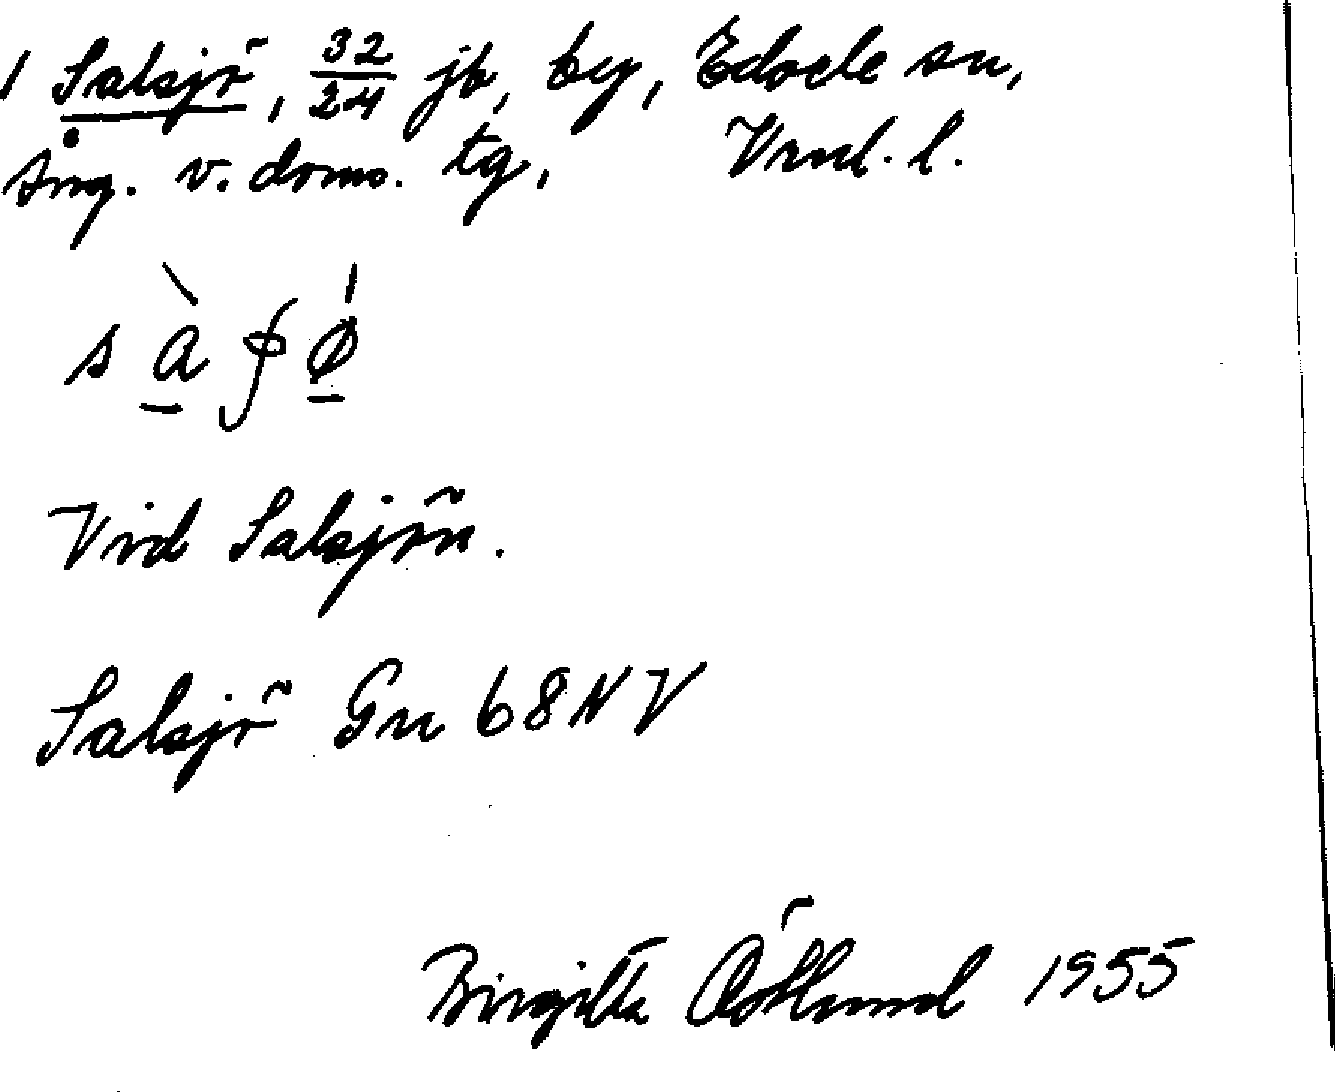 1 Salsjö, 32/24 jb, by, Edsele sn,
Ång. v. doms. tg, Vnl. l.
Vid Salsjön.
Salsjö Gn 68 NV
Birgitta Östlund 1955